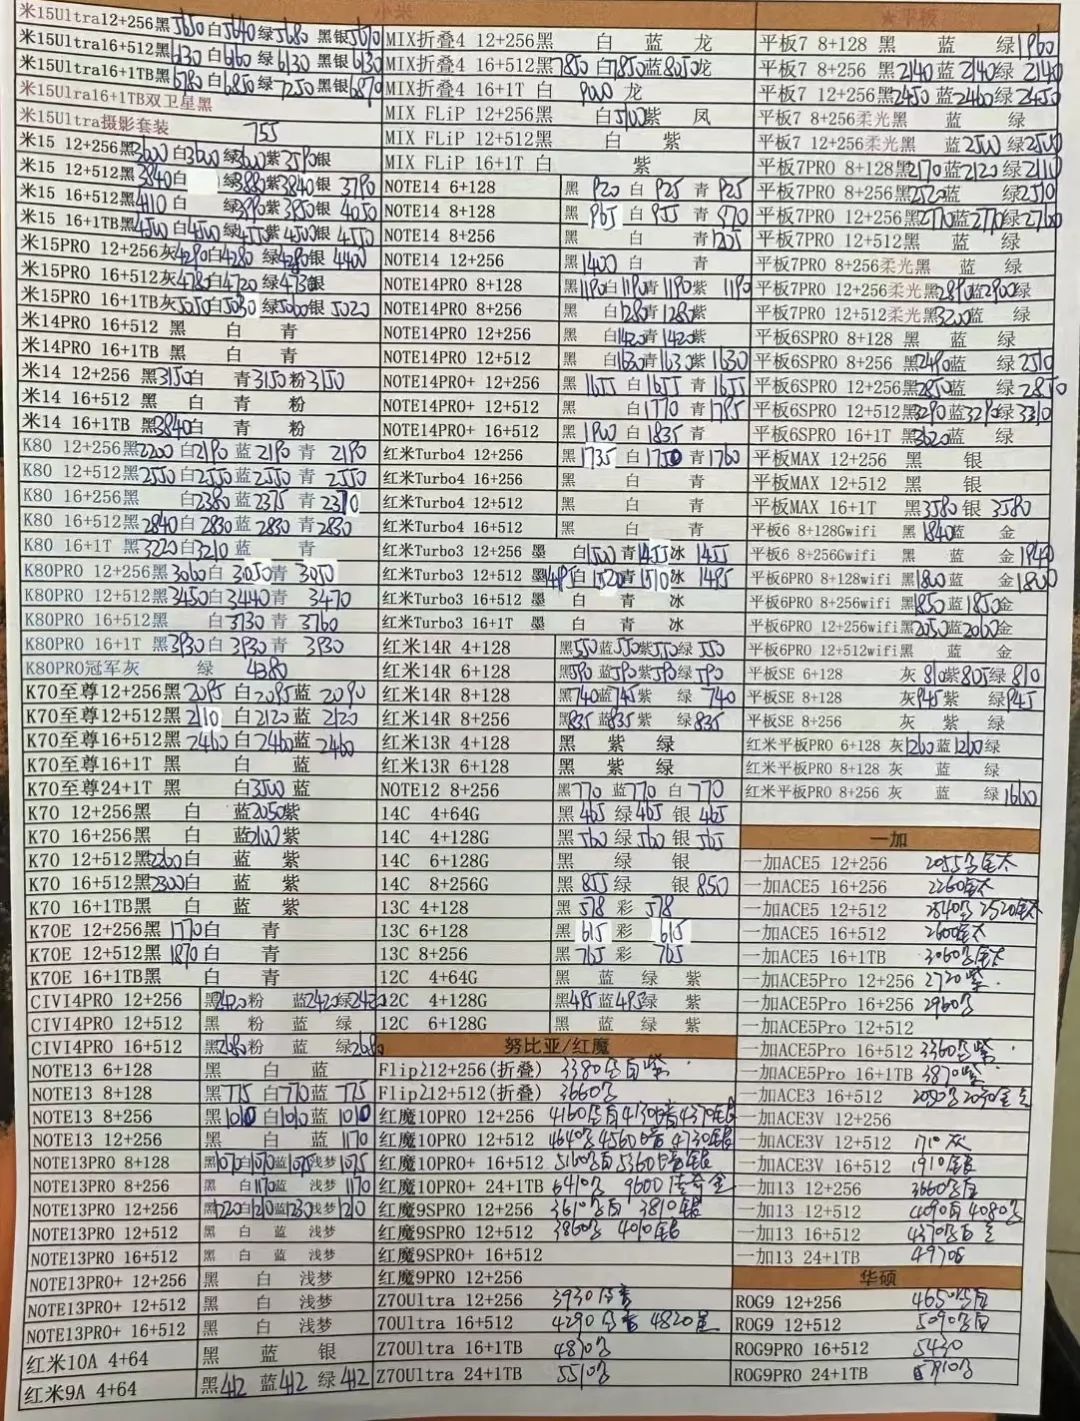 小米
★平板
米15Ultra12+256黑5650白5640绿5680 黑银5670
米15Ultra16+512黑6130白6160绿6130 黑银6130
米15Ultra16+1TB黑6780白6850绿7250黑银6870
米15Ulra16+1TB双卫星黑
米15Ultra摄影套装 755
米15 12+256黑3600白3600绿3600紫3590银
米15 12+512黑3840白 绿3880紫3840银 3790
米15 16+512黑4110 白 绿3990紫3950银 4050
米15 16+1TB黑4500白4500绿4550紫4500银 4550
米15PRO 12+256灰4290白4280 绿4290银 4400
米15PRO 16+512灰4780白4720 绿4730银
米15PRO 16+1TB灰5050白5030 绿5060银 5020
米14PRO 16+512 黑 白 青
米14PRO 16+1TB 黑 白 青
米14 12+256 黑3150白 青3150粉3150
米14 16+512 黑 白 青 粉
米14 16+1TB 黑3840白 青 粉
K80 12+256黑2200 白2190 蓝2190 青 2190
K80 12+512黑2550白2550蓝2550 青 2550
K80 16+256黑 白2380 蓝2375 青2370
K80 16+512黑2840白2830蓝2830 青2830
K80 16+1T 黑3220白3210 蓝 青
K80PRO 12+256黑3060白3050青 3050
K80PRO 12+512黑3450白3440青 3470
K80PRO 16+512黑 白3730 青 3760
K80PRO 16+1T 黑3930白3930 青 3930
K80PRO冠军灰 绿 4380
K70至尊12+256黑 2095 白2095蓝 2090
K70至尊12+512黑2110 白2120蓝 2120
K70至尊16+512黑 2460 白2460蓝 2460
K70至尊16+1T 黑 白 蓝
K70至尊24+1T 黑 白3500 蓝
K70 12+256黑 白 蓝2050紫
K70 16+256黑 白 蓝2100紫
K70 12+512黑2260白 蓝 紫
K70 16+512黑2300白 蓝 紫
K70 16+1TB黑 白 蓝 紫
K70E 12+256黑1770白 青
K70E 12+512黑 1870白 青
K70E 16+1TB黑 白 青
CIVI4PRO 12+256 黑2420粉 蓝2420绿2420
CIVI4PRO 12+512 黑 粉 蓝 绿
CIVI4PRO 16+512 黑2680粉 蓝 绿2680
NOTE13 6+128 黑 白 蓝
NOTE13 8+128 黑775 白770蓝 775
NOTE13 8+256 黑1010 白1010 蓝 1010
NOTE13 12+256 黑 白 蓝 1170
NOTE13PRO 8+128 黑1070白1070蓝1075浅梦1075
NOTE13PRO 8+256 黑 白1170蓝 浅梦 1170
NOTE13PRO 12+256 黑1220白1210蓝1230浅梦1210
NOTE13PRO 12+512 黑 白 蓝 浅梦
NOTE13PRO 16+512 黑 白 蓝 浅梦
NOTE13PRO+ 12+256 黑 白 浅梦
NOTE13PRO+ 12+512 黑 白 浅梦
NOTE13PRO+ 16+512 黑 白 浅梦
红米10A 4+64 黑 蓝 银
红米9A 4+64 黑412 蓝412 绿 412
MIX折叠4 12+256黑 白 蓝 龙
MIX折叠4 16+512黑7850 白7850蓝8050龙
MIX折叠4 16+1T 白 9000 龙
MIX FLiP 12+256黑 白5100紫 凤
MIX FLiP 12+512黑 白 紫
MIX FLiP 16+1T 白 紫
NOTE14 6+128 黑 920 白 925 青 925
NOTE14 8+128 黑 965 白 955 青 970
NOTE14 8+256 黑 白 青1205
NOTE14 12+256 黑1400 白 青
NOTE14PRO 8+128 黑1190白1190青1190紫 1190
NOTE14PRO 8+256 黑 白1280青1280紫
NOTE14PRO 12+256 黑 白1420青1420紫
NOTE14PRO 12+512 黑 白1630青1630紫1630
NOTE14PRO+ 12+256 黑 1655 白1655 青 1655
NOTE14PRO+ 12+512 黑 白1770 青1795
NOTE14PRO+ 16+512 黑 1900 白1835 青
红米Turbo4 12+256 黑1735 白 1750青1760
红米Turbo4 16+256 黑 白 青
红米Turbo4 12+512 黑 白 青
红米Turbo4 16+512 黑 白 青
红米Turbo3 12+256 墨 白1500青1455冰 1455
红米Turbo3 12+512 墨1495白1520青1510冰 1495
红米Turbo3 16+512 墨 白 青 冰
红米Turbo3 16+1T 墨 白 青 冰
红米14R 4+128 黑550蓝550紫550绿 550
红米14R 6+128 黑590 蓝590紫590绿 590
红米14R 8+128 黑740蓝745紫 绿 740
红米14R 8+256 黑835 蓝835紫 绿835
红米13R 4+128 黑 紫 绿
红米13R 6+128 黑 紫 绿
NOTE12 8+256 黑770 蓝770 白 770
14C 4+64G 黑 465 绿465 银 465
14C 4+128G 黑560 绿560 银 565
14C 6+128G 黑 绿 银
14C 8+256G 黑 855绿 银 850
13C 4+128 黑 578 彩 578
13C 6+128 黑 615 彩 615
13C 8+256 黑 765 彩 765
12C 4+64G 黑 蓝 绿 紫
12C 4+128G 黑495蓝495绿 紫
12C 6+128G 黑 蓝 绿 紫
努比亚/红魔
Flip212+256(折叠) 3380
Flip212+512(折叠) 3660
红魔10PRO 12+256 4160 4130 4370
红魔10PRO 12+512 4640 4560 4730
红魔10PRO+ 16+512 5160 5360
红魔10PRO+ 24+1TB 6410 9600传奇金
红魔9SPRO 12+256 3610 3810银
红魔9SPRO 12+512 3860 4010银
红魔9SPRO+ 16+512
红魔9PRO 12+256
Z70Ultra 12+256 3930
70Ultra 16+512 4290 4820
Z70Ultra 16+1TB 4870
Z70Ultra 24+1TB 5510
平板7 8+128 黑 蓝 绿1960
平板7 8+256 黑2140蓝2140绿 2140
平板7 12+256 黑2450 蓝2460绿2450
平板7 8+256柔光黑 蓝 绿
平板7 12+256柔光黑 蓝2500绿2500
平板7PRO 8+128黑2170蓝2120 绿2110
平板7PRO 8+256黑2520蓝 绿2510
平板7PRO 12+256黑2770蓝2770绿2760
平板7PRO 12+512黑 蓝 绿
平板7PRO 8+256柔光黑 蓝 绿
平板7PRO 12+256柔光黑2890蓝2900绿
平板7PRO 12+512柔光黑3200蓝 绿
平板6SPRO 8+128 黑 蓝 绿
平板6SPRO 8+256 黑2490蓝 绿 2510
平板6SPRO 12+256黑2850蓝 绿 2850
平板6SPRO 12+512黑3290蓝3290绿3310
平板6SPRO 16+1T 黑3620蓝 绿
平板MAX 12+256 黑 银
平板MAX 12+512 黑 银
平板MAX 16+1T 黑3580 银 3580
平板6 8+128Gwifi 黑 1840蓝 金
平板6 8+256Gwifi 黑 蓝 金 1940
平板6PRO 8+128wifi 黑1800 蓝 金1800
平板6PRO 8+256wifi 黑1850 蓝1850金
平板6PRO 12+256wifi黑2050蓝2060金
平板6PRO 12+512wifi黑 蓝 金
平板SE 6+128 灰 810紫805绿 810
平板SE 8+128 灰945紫 绿945
平板SE 8+256 灰 紫 绿
红米平板PRO 6+128 灰1260蓝1260绿
红米平板PRO 8+128 灰 蓝 绿
红米平板PRO 8+256 灰 蓝 绿 1600
一加
一加ACE5 12+256 2055
一加ACE5 16+256 2260
一加ACE5 12+512 2540 2520
一加ACE5 16+512 2600
一加ACE5 16+1TB 3060
一加ACE5Pro 12+256 2720紫
一加ACE5Pro 16+256 2960
一加ACE5Pro 12+512
一加ACE5Pro 16+512 3360
一加ACE5Pro 16+1TB 3870
一加ACE3 16+512 2090 2030
一加ACE3V 12+256
一加ACE3V 12+512 1710灰
一加ACE3V 16+512 1910
一加13 12+256 3660
一加13 12+512 4090 4080
一加13 16+512 4370
一加13 24+1TB 4970
华硕
ROG9 12+256 4650
ROG9 12+512 5090
ROG9PRO 16+512 5430
ROG9PRO 24+1TB